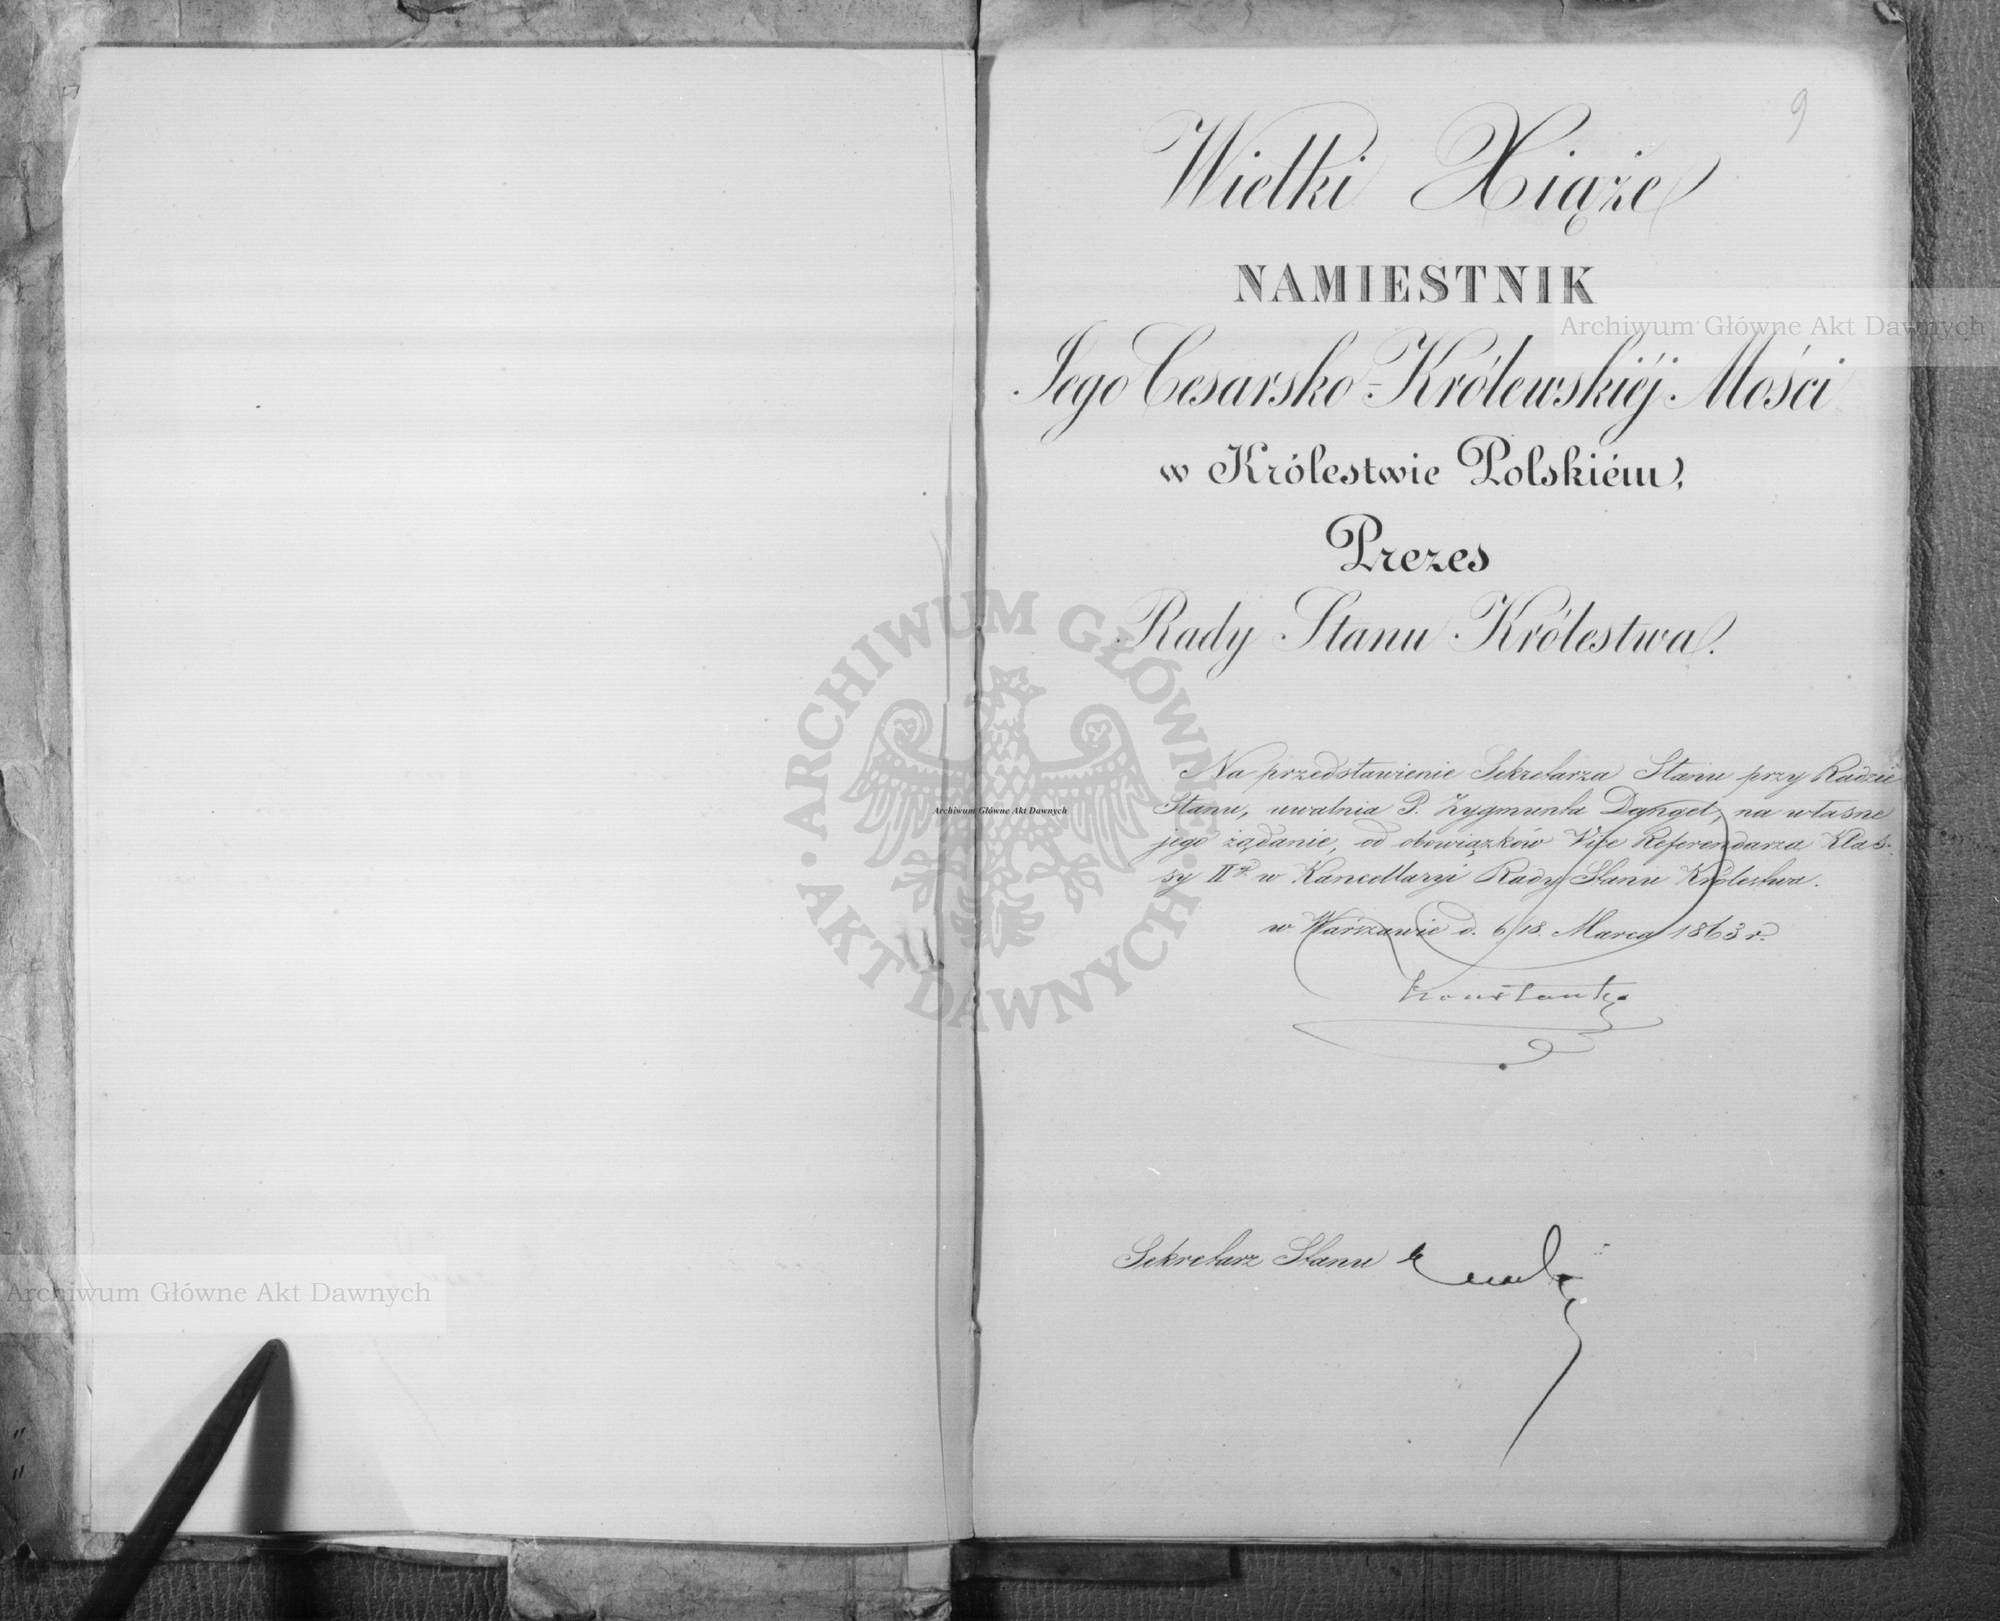 9
Wielki Xiąże
NAMIESTNIK
Jego Cesarsko-Królewskiéj Mości
w Królestwie Polskiém,
Prezes
Rady Stanu Królestwa.
Na przedstawienie Sekretarza Stanu przy Radzie
Stanu, uwalnia P. Zygmunta Dangel, na własne
jego żądanie, od obowiązków Vice Referendarza Klas-
sy IIéj w Kancellaryi Rady Stanu Królestwa.
w Warszawie d. 6/18. Marca 1863 r.
Konstanty
Sekretarz Stanu
Archiwum Główne Akt Dawnych
ARCHIWUM GŁÓWNE AKT DAWNYCH
Archiwum Główne Akt Dawnych
Archiwum Główne Akt Dawnych